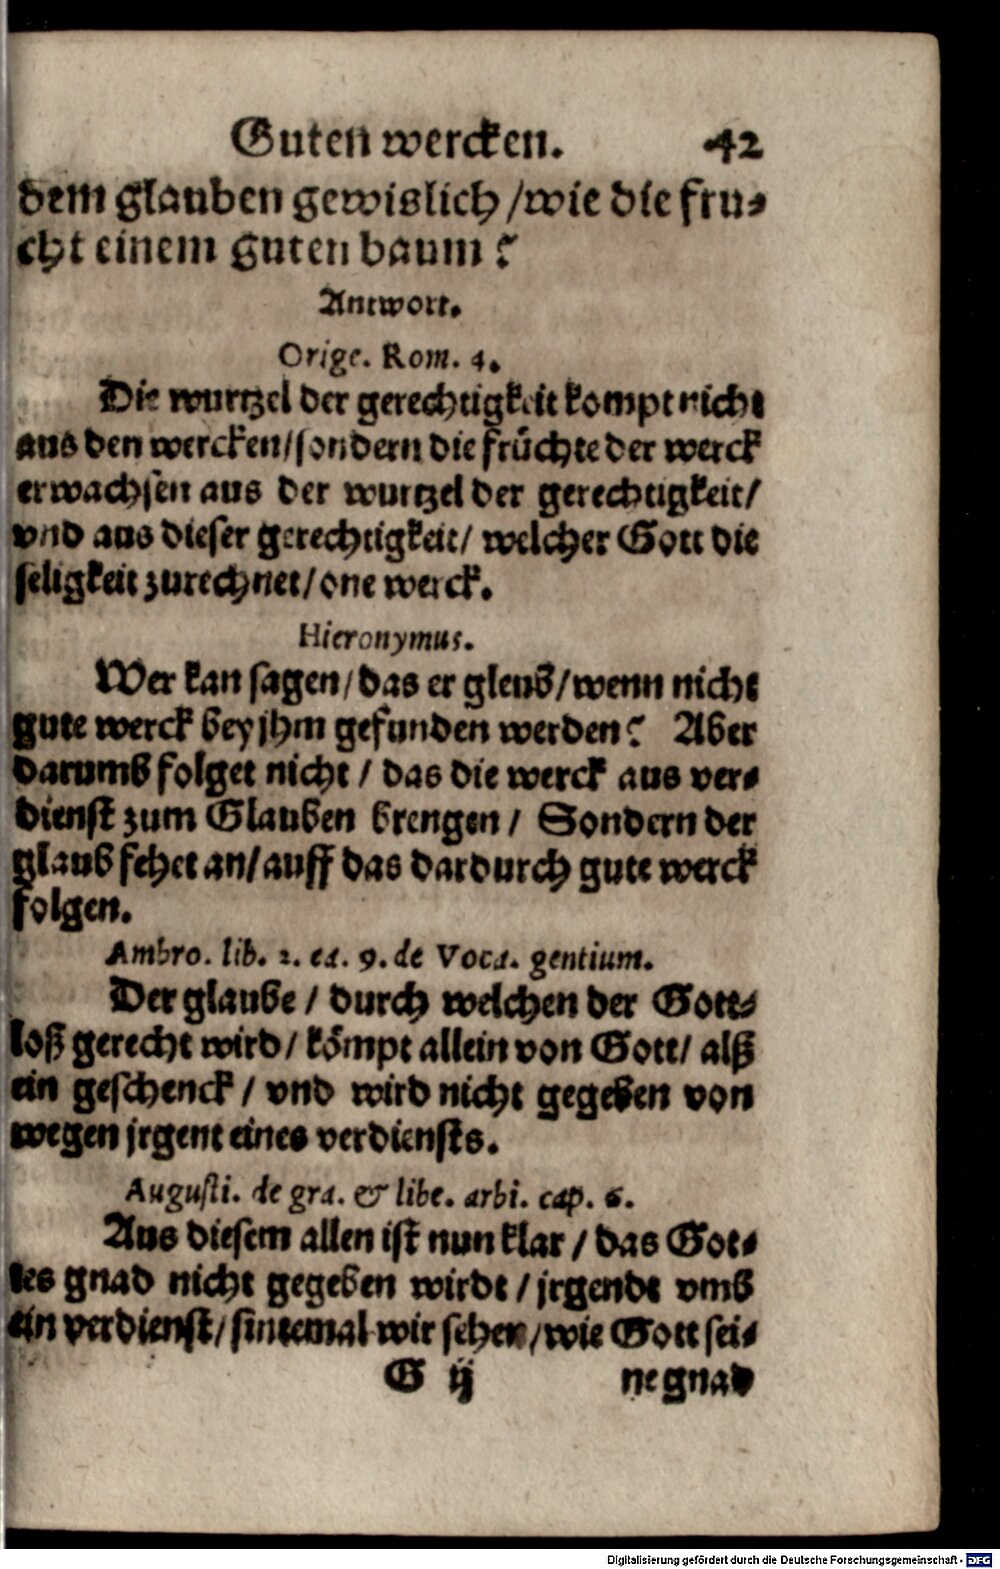 Guten wercken. 42
dem glauben gewislich /wie die fru⸗
cht einem guten baum?
Antwort.
Orige. Rom. 4.
Die wurtzel der gerechtigkeit kompt nicht
aus den wercken/sondern die früchte der werck
erwachsen aus der wurtzel der gerechtigkeit/
vnd aus dieser gerechtigkeit/ welcher Gott die
seligkeit zurechnet/one werck.
Hieronymus.
Wer kan sagen/das er gleub/wenn nicht
gute werck bey jhm gefunden werden? Aber
darumb folget nicht / das die werck aus ver⸗
dienst zum Glauben brengen / Sondern der
glaub fehet an/auff das dardurch gute werck
folgen.
Ambro. lib. 2. ca. 9. de Voca. gentium.
Der glaube / durch welchen der Gott⸗
loß gerecht wird/ kömpt allein von Gott/ alß
ein geschenck / vnd wird nicht gegeben von
wegen jrgent eines verdiensts.
Augusti. de gra. & libe. arbi. cap. 6.
Aus diesem allen ist nun klar / das Got⸗
tes gnad nicht gegeben wirdt / jrgendt vmb
ein verdienst/ sintemal wir sehen /wie Gott sei⸗
G ij ne gnad
Digitalisierung gefördert durch die Deutsche Forschungsgemeinschaft - DFG